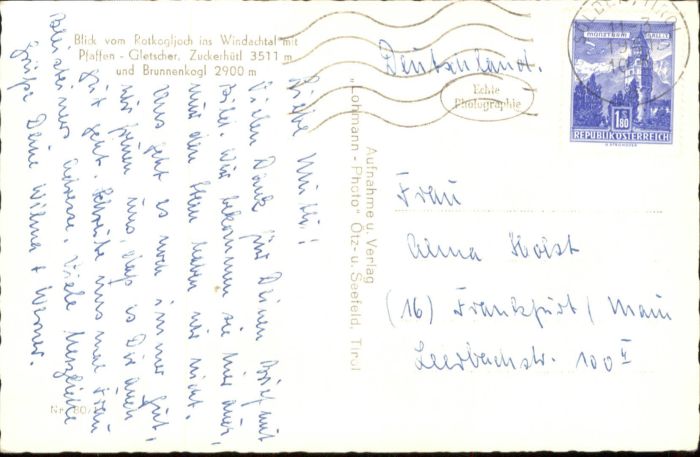 Blick vom Rotkogljoch ins Windachtal mit
Pfaffen - Gletscher, Zuckerhütl 3511 m
und Brunnenkogl 2900 m
Liebe Mutti!
Vielen Dank für Deinen Brief mit
Bilder. Wir bekommen sie hier auch,
nur den Stern haben wir nicht.
Uns geht es noch immer gut,
wir freuen uns, daß es Dir auch
gut geht. Schreibe uns mal Frau
Adresse. Viele herzliche
Grüße Deine Wilma + Werner.
Nr. 80
Aufnahme u. Verlag
"Lohmann - Photo" Ötz- u. Seefeld, Tirol
Deutschland.
Echte
Photographie
MÜNZTURM HALL i. T.
1.80
REPUBLIK ÖSTERREICH
SÖLDEN, TIROL
11.
Frau
Alma Horst
(16) Frankfurt / Main
Leerbachstr. 100 II